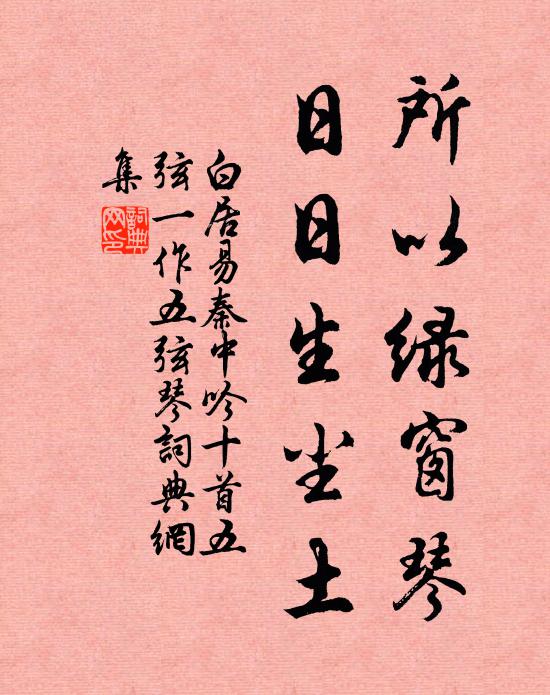 所以绿窗琴
日日生尘土
白居易秦中吟十首五
弦一作五弦琴詞典網
集
詞典网印